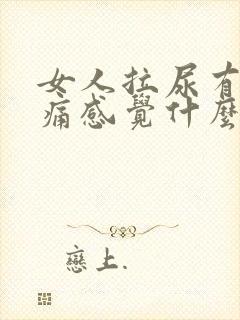 女人拉尿有
痛感覺什麼
戀上.